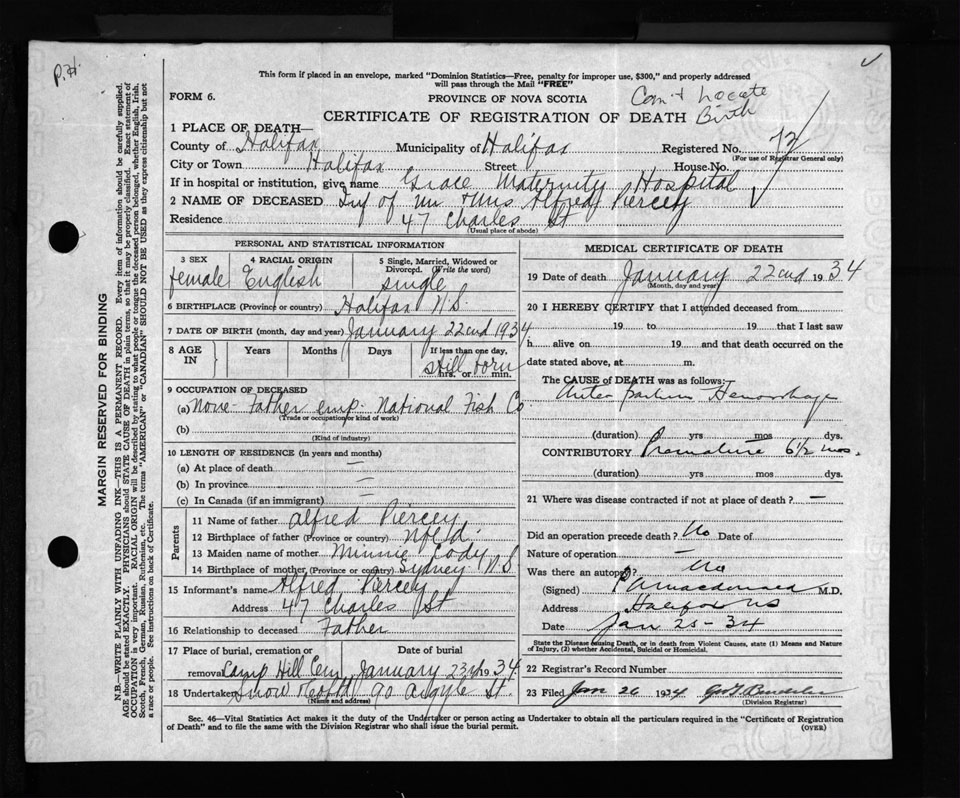 P.H.
This form if placed in an envelope, marked "Dominion Statistics—Free, penalty for improper use, $300," and properly addressed
will pass through the Mail "FREE"
FORM 6.
PROVINCE OF NOVA SCOTIA
Can't Locate
Birth
CERTIFICATE OF REGISTRATION OF DEATH
1 PLACE OF DEATH—
County of Halifax Municipality of Halifax Registered No. 72
(For use of Registrar General only)
City or Town Halifax Street House No.
If in hospital or institution, give name Grace Maternity Hospital
2 NAME OF DECEASED Inf of Mr & Mrs Alfred Piercey
Residence 47 Charles St
(Usual place of abode)
PERSONAL AND STATISTICAL INFORMATION
3 SEX
female
4 RACIAL ORIGIN
English
5 Single, Married, Widowed or
Divorced. (Write the word)
single
6 BIRTHPLACE (Province or country) Halifax N.S.
7 DATE OF BIRTH (month, day and year) January 22nd 1934
8 AGE IN Years Months Days If less than one day,
still born
hrs. or min.
9 OCCUPATION OF DECEASED
(a) None - Father emp - National Fish Co
(Trade or occupation or kind of work)
(b)
(Kind of industry)
10 LENGTH OF RESIDENCE (in years and months)
(a) At place of death —
(b) In province —
(c) In Canada (if an immigrant) —
Parents
11 Name of father Alfred Piercey
12 Birthplace of father (Province or country) Nfld.
13 Maiden name of mother Minnie Cody
14 Birthplace of mother (Province or country) Sydney N.S
15 Informant's name Alfred Piercey
Address 47 Charles St
16 Relationship to deceased Father
17 Place of burial, cremation or removal Date of burial
Camp Hill Cem January 23rd 1934
18 Undertaker Snow & Co Ltd 90 Argyle St.
(Name and address)
MEDICAL CERTIFICATE OF DEATH
19 Date of death January 22nd 1934
(Month, day and year)
20 I HEREBY CERTIFY that I attended deceased from
19 to 19 that I last saw
h alive on 19 and that death occurred on the
date stated above, at m.
The CAUSE of DEATH was as follows:
Ante partum Hemorrhage
(duration) yrs mos dys.
CONTRIBUTORY Premature 6½ mos.
(duration) yrs mos dys.
21 Where was disease contracted if not at place of death? —
Did an operation precede death? No Date of
Nature of operation —
Was there an autopsy? No
(Signed) Macdonald M.D.
Address Halifax NS
Date Jan 25-34
State the Disease causing Death, or in death from Violent Causes, state (1) Means and Nature
of Injury, (2) whether Accidental, Suicidal or Homicidal.
22 Registrar's Record Number
23 Filed Jan 26 1934
(Division Registrar)
Sec. 46—Vital Statistics Act makes it the duty of the Undertaker or person acting as Undertaker to obtain all the particulars required in the "Certificate of Registration
of Death" and to file the same with the Division Registrar who shall issue the burial permit.
(OVER)
MARGIN RESERVED FOR BINDING
N.B.—WRITE PLAINLY WITH UNFADING INK—THIS IS A PERMANENT RECORD. Every item of information should be carefully supplied.
AGE should be stated EXACTLY. PHYSICIANS should STATE CAUSE OF DEATH in plain terms, so that it may be properly classified. Exact statement of
OCCUPATION is very important. RACIAL ORIGIN will be described by stating to what people or tongue the deceased person belonged, whether English, Irish,
Scotch, French, German, Russian, Ruthenian, etc. The terms "AMERICAN" or "CANADIAN" SHOULD NOT BE USED as they express citizenship but not
a race or people. See instructions on back of Certificate.